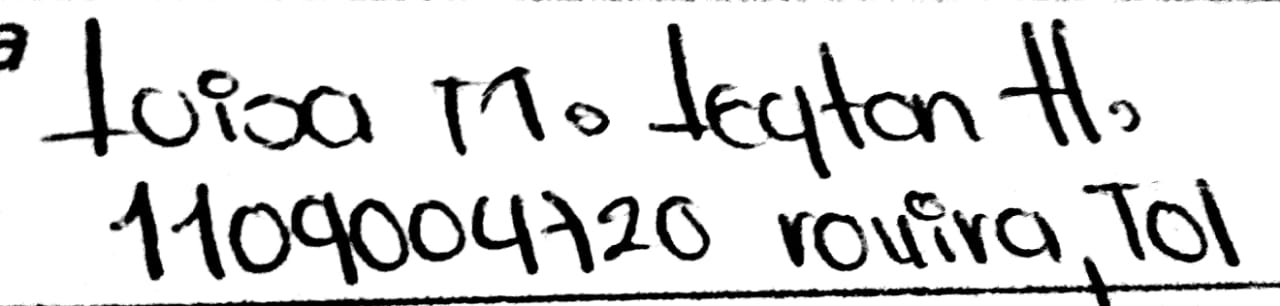 Luisa M. Leyton H.
1109004720 rovira, Tol